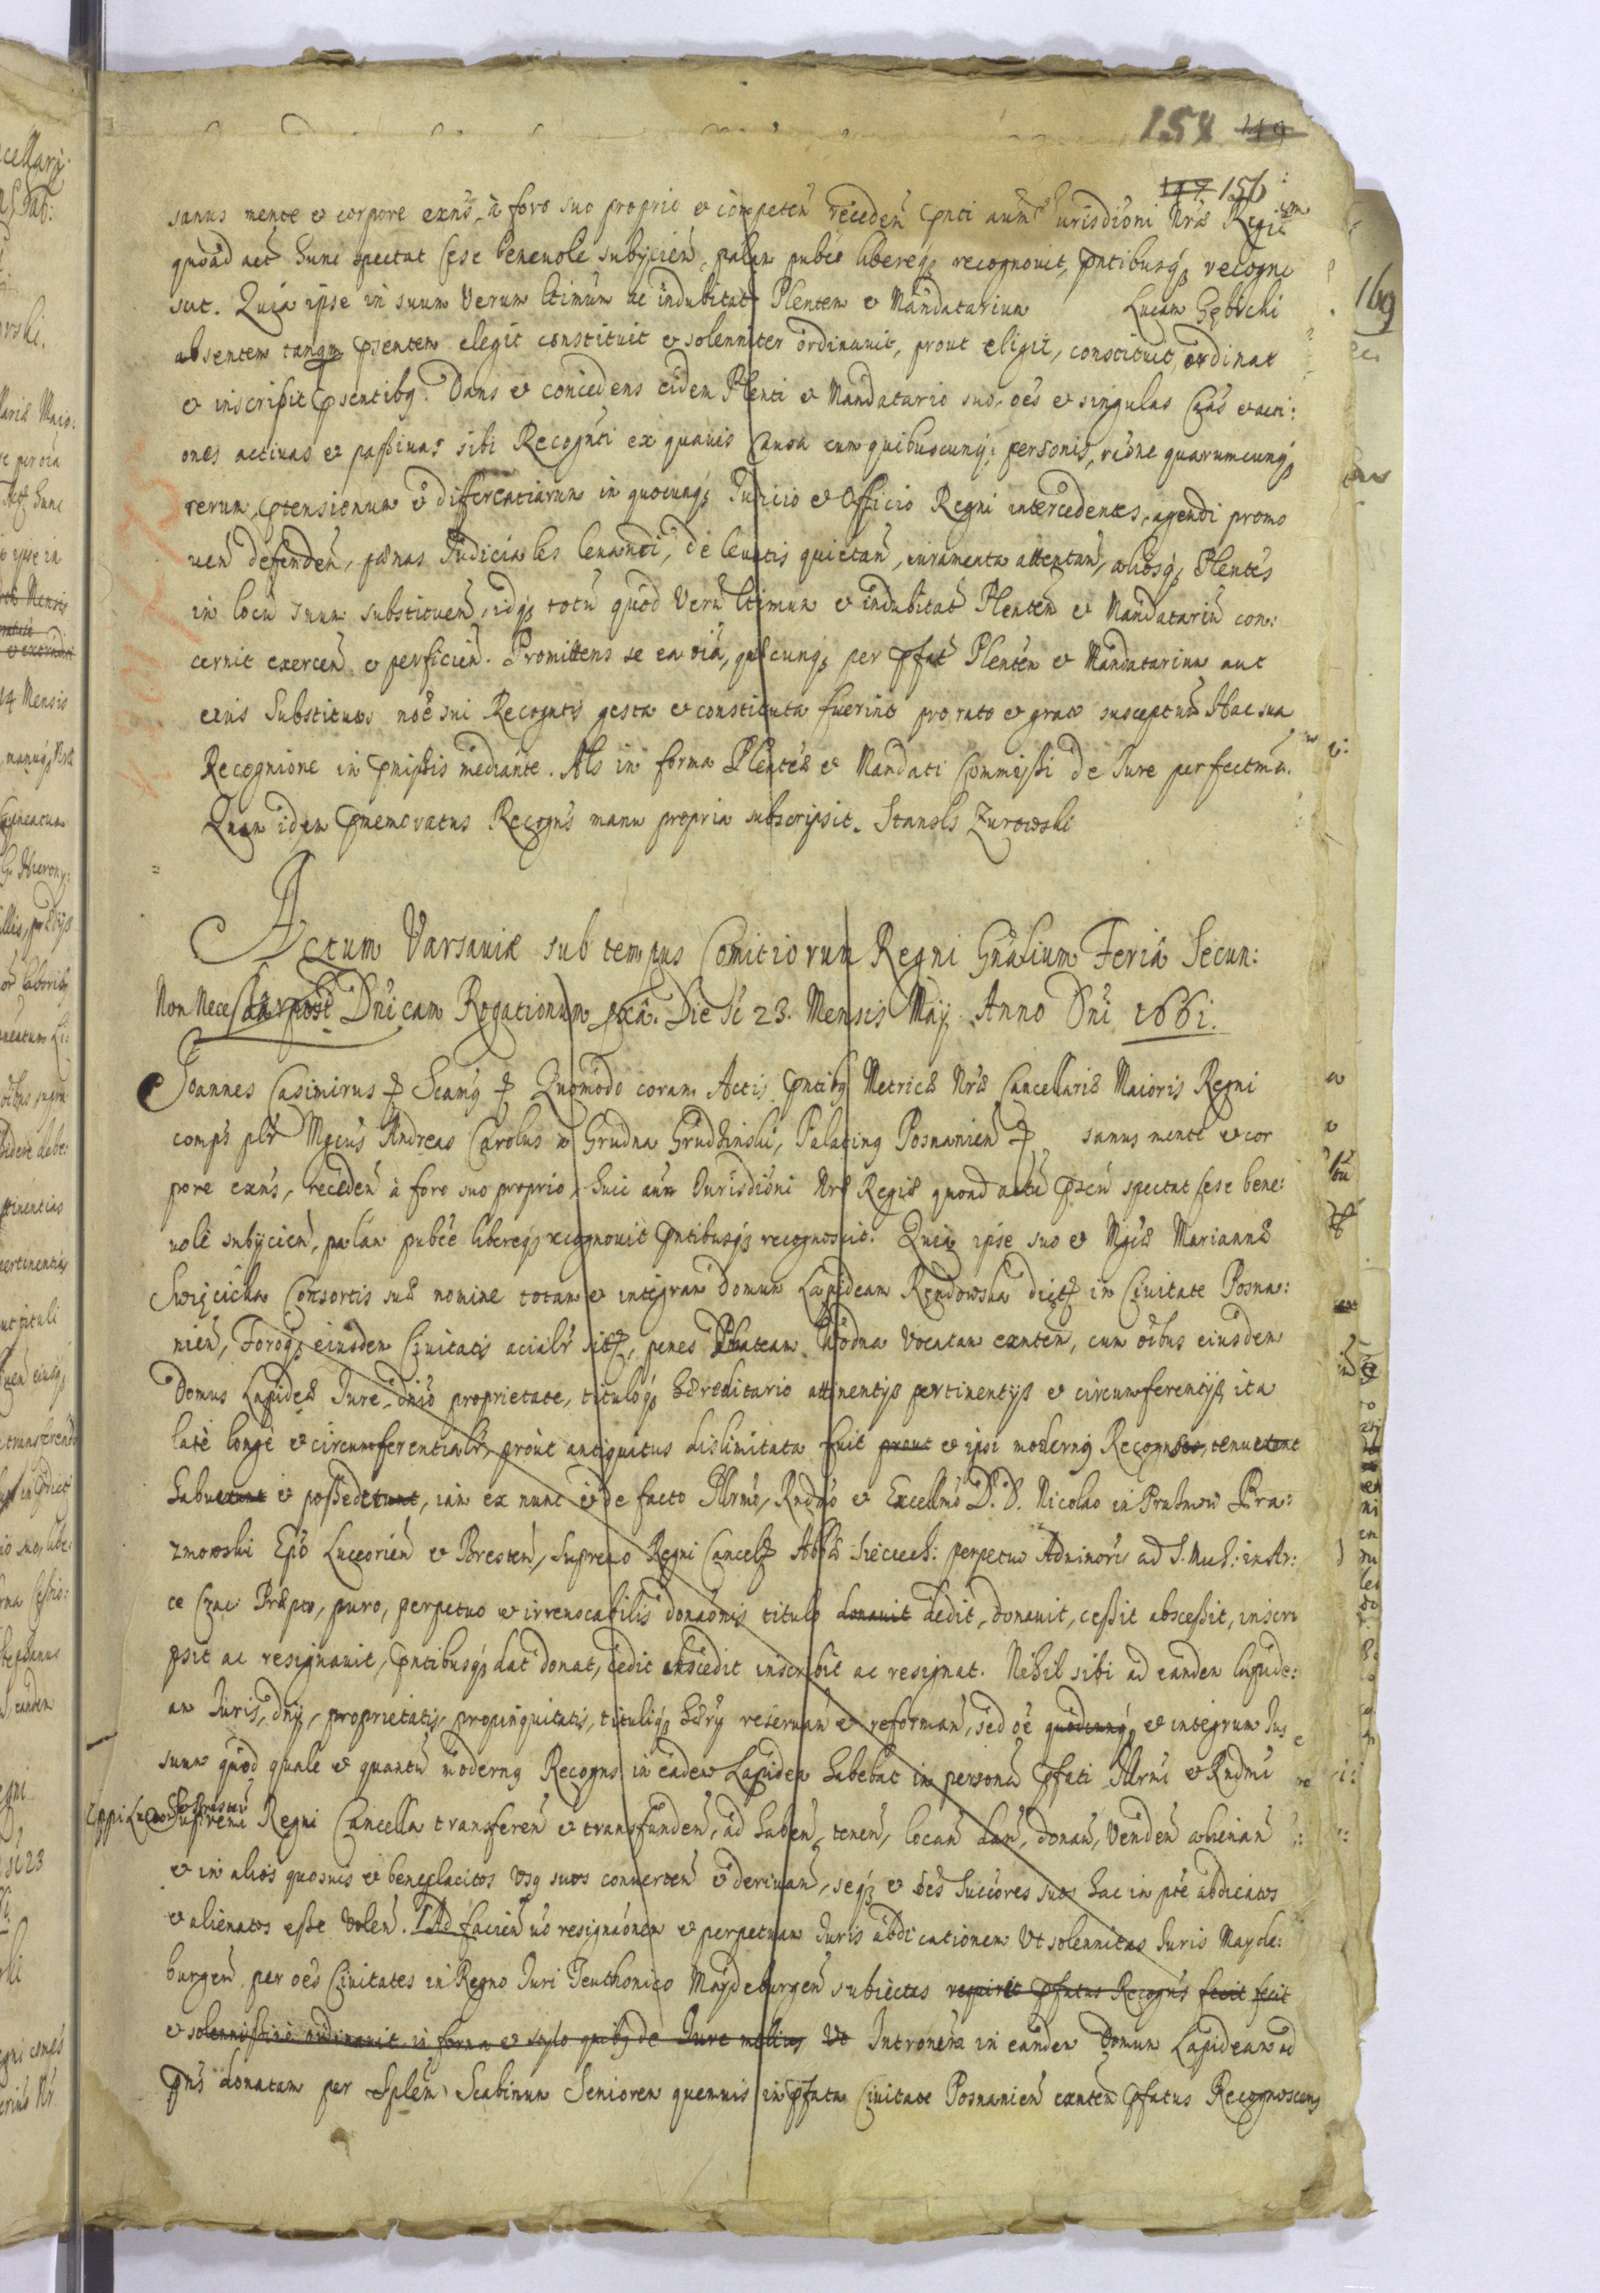 154 149
147 156
sanus mente et corpore exns, à foro suo proprio et competen receden pnti aum Iurisdioni Nrae Regiae
quoad act hunc spectat sese beneuole subijcien, palam pubce libereq recognouit, pntibusq recogno
scit. Quia ipse in suum Verum ltimum ac indubitat Plentem et Mandatarium Lucam Gębicki
absentem tanqm psentem elegit constituit et solenniter ordinauit, prout eligit, constituit, ordinat
et inscribit psentibq. Dans et concedens eidem Plenti et Mandatario suo, oes et singulas Czas et acti:
ones actiuas et passiuas sibi Recognti ex quauis Causa cum quibuscunq; personis, rione quarumcunq
rerum, ptensionum et differentiarum in quocunq Iudicio et Officio Regni intercedentes, agendi promo
uen defenden, paenas Iudiciales leuandi, de leuatis quietan, iuramenta attentan, aliosq Plentes
in locu suum substituen, idq totu quod Veru ltimum et indubitat Plentem et Mandatariu con:
cernit exercen et perficien. Promittens se ea oia, quaecunq per pfat Plentem et Mandatarium aut
eius Substitutos noe sui Recogntis gesta et constituta fuerint pro rato et grato suscepturu Hac sua
Recognione in pmissis mediante. Als in forma Plentiae et Mandati Commissi de Iure perfectma.
Quam idem pmemoratus Recogns manu propria subscripsit. Stansls Zurowski
Actum Varsauiae sub tempus Comitiorum Regni Gnalium Feria Secun:
Non Nece dâ post Dnicam Rogationum pxa. Die sc 23. Mensis Maÿ Anno Dni 1661.
Joannes Casimirus Scamq Quomodo coram Actis pntibq Metricae Nrae Cancellariae Maioris Regni
comps plr Mgcus Andreas Carolus w Grudna Grudziński, Palatinq Posnanien sanus mente et cor
pore exns, receden à foro suo proprio, huic aum Iurisdioni Nrae Regiae quoad actu psen spectat sese bene:
uole subijcien, palam pubce libereq recognouit pntibusq recognoscit. Quia ipse suo et Mgcae Mariannae
Swięcicka Consortis suae nomine totam et integram domum Lapideam Rędowska dict in Ciuitate Posna:
nien, Foroq eiusdem Ciuitatis acialr sit, penes Plateam Wodna Vocatam exntem, cum oibus eiusdem
Domus Lapideae Iure, dnio proprietate, tituloq haereditario attinentijs pertinentijs et circumferentijs, ita
late longe et circumferentialr, prout antiquitus dislimitata fuit prout et ipsi modernq Recognscs, tenuerunt
habuerunt et possederunt, iam ex nunc et de facto Illrmo, Rndmo et Excellmo D. D. Nicolao in Prażmow Pra:
zmowski Epo Luceorien et Bresten, Supremo Regni Cancel Abba Sieciech: perpetuo Adminoris ad S. Mich: in Ar:
ce Crac Praepto, puro, perpetuo et irreuocabilis donaonis titulo donauit dedit, donauit, cessit abscessit, inscri
psit ac resignauit, pntibusq dat donat, cedit abscedit inscribit ac resignat. Nihil sibi ad eandem lapide:
am Iuris, dnij, proprietatis, propinquitatis, tituliq haerij reseruan et reforman, sed oe quodcunq et integrum Ius
suum quod quale et quantu modernq Recogns in eadem Lapidea habebat in persona pfati Illrmi et Rndmi
Eppi Luceor et Bresten Supremi Regni Cancella transferen et transfunden, ad haben, tenen, locan dan, donan, venden alienan
et in alios quosuis et beneplacitos Vsq suos conuerten et deriuan, seq et oes Succores suos hac in pte abdicatos
et alienatos esse Volen. Ad facien uo resignaonem et perpetuam Iuris abdicationem Vt solennitas Iuris Mayde:
burgen per oes Ciuitates in Regno Iuri Teuthonico Maydeburgen subiectas requirit pfatus Recogns fecit fecit
et solennissime ordinauit in forma et stylo quibq de Iure melius Vt Intromem in eandem Domum Lapideam ad
pns donatam per Splen Scabinum Seniorem quemuis in pfata Ciuitate Posnanien exntem pfatus Recognoscens